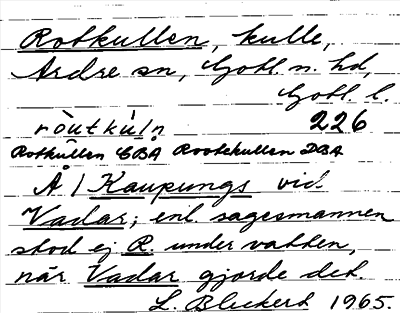 Rotkullen, kulle,
Ardre sn, Gotl. n. hd,
Gotl. l.
ròutkùl̥n 226
Rotkullen EBA Rootekullen DBA
Å / Kaupungs vid
Vadar; enl. sagesmannen
stod ej R. under vatten,
när Vadar gjorde det.
L. Bleckert 1965.